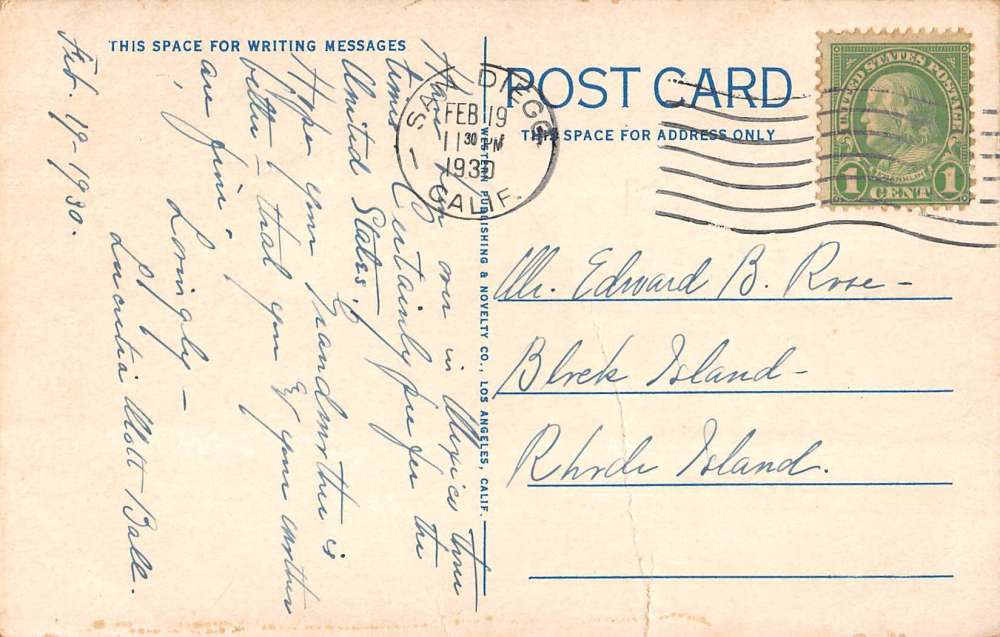 THIS SPACE FOR WRITING MESSAGES
POST CARD
THIS SPACE FOR ADDRESS ONLY
Feb. 19-1930.
Have been over in Mexico three
times - Certainly prefer the
United States!
Hope your Grandmother is
better - that you & your mother
are fine.
Lovingly -
Lucretia Mott Ball.
WESTERN PUBLISHING & NOVELTY CO., LOS ANGELES, CALIF.
SAN DIEGO
FEB 19
11 30 PM
1930
CALIF.
UNITED STATES POSTAGE
FRANKLIN
1 CENT 1
Mr. Edward B. Rose -
Block Island -
Rhode Island.